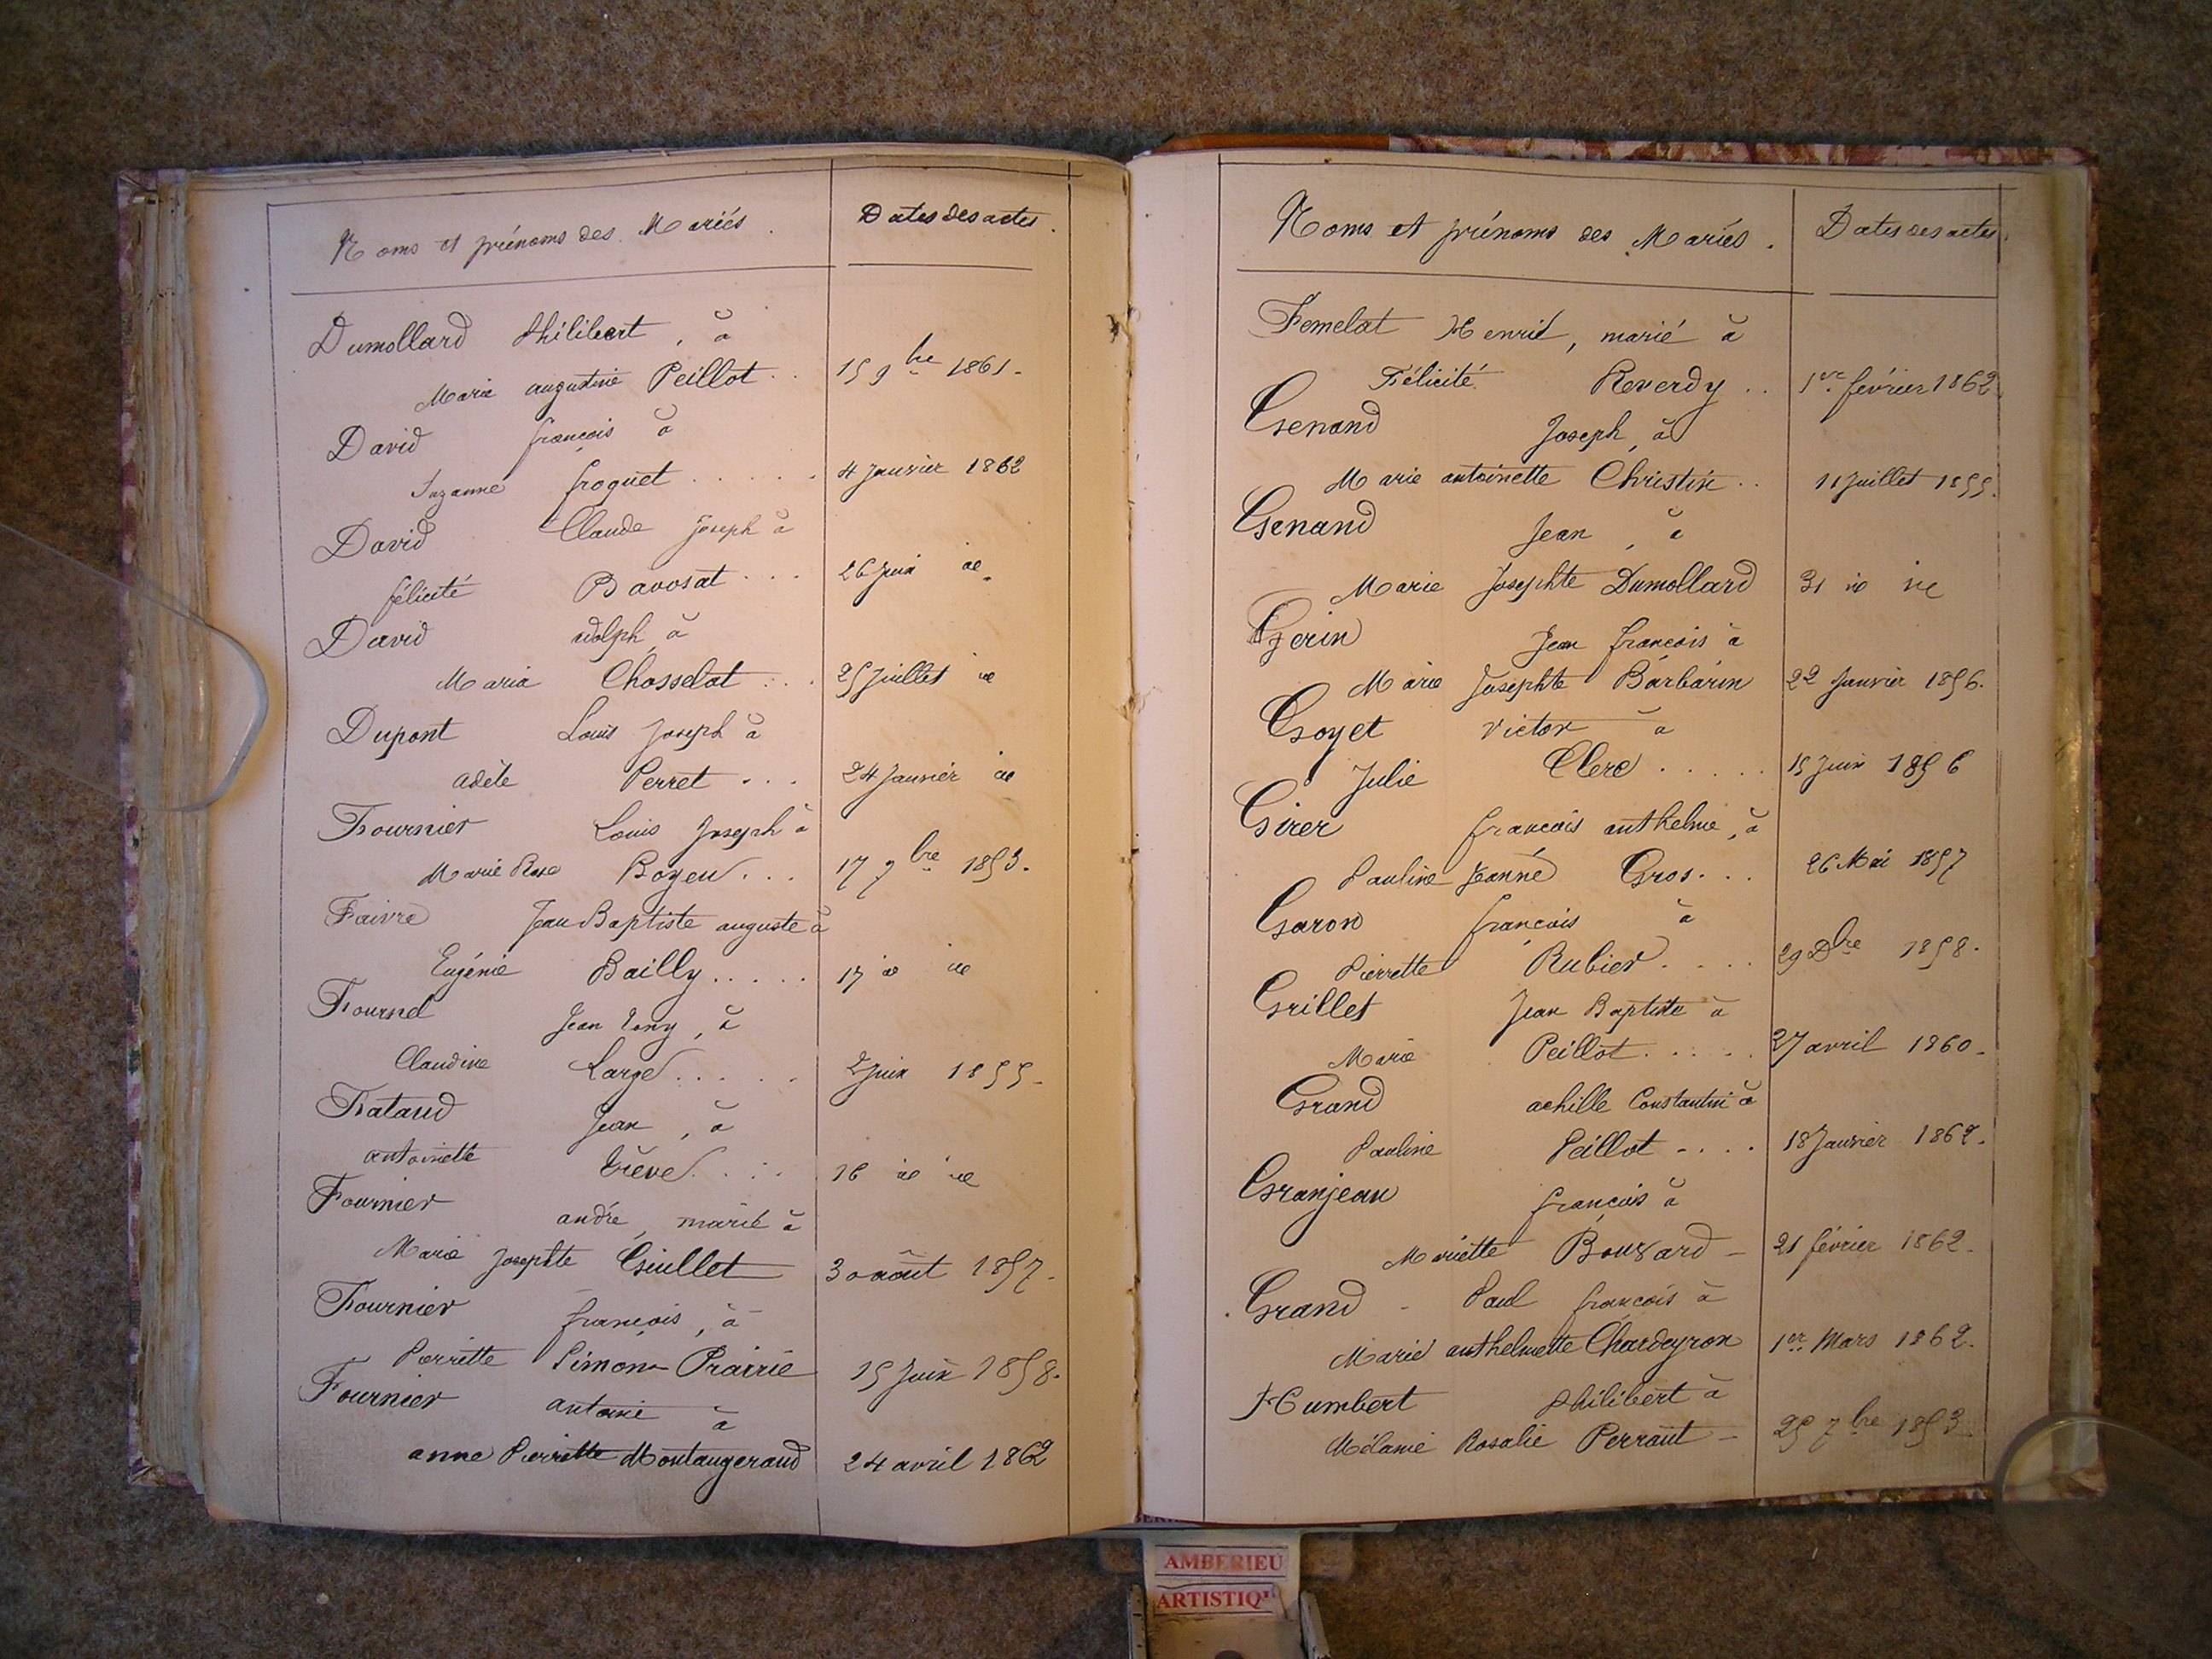 Noms et prénoms des Mariés.
Dates des actes.
Dumollard Philibert, à
Marie augustine Peillot.. 15 9bre 1861.
David françois à
Suzanne froquet ..... 4 Janvier 1862
David Claude Joseph à
félicité Bavosat ... 26 Juin id.
David adolph, à
Maria Chosselat ... 25 Juillet id
Dupont Louis Joseph à
adèle Perret ... 24 Janvier id
Fournier Louis Joseph à
Marie Rose Boyeu ... 17 9bre 1853.
Faivre Jean Baptiste auguste à
Eugénie Bailly ..... 17 id id
Fournel Jean Tony, à
Claudine Large ..... 2 Juin 1855.
Rataud Jean, à
antoinette Trêve .... 16 id id
Fournier andré, marié à
Marie Josephte Guillet 30 août 1857.
Fournier françois, à
Pierrette Simon Prairie 15 Juin 1858.
Fournier antoine à
anne Pierrette Montaugerand 24 avril 1862
Noms et prénoms des Mariés.
Dates des actes.
Femelat Henri, marié à
Félicité Reverdy .. 1er février 1862
Genand Joseph, à
Marie antoinette Christin .. 11 Juillet 1855.
Genand Jean, à
Marie Josephte Dumollard 31 id id
Gerin Jean françois à
Marie Josephte Barbarin 22 Janvier 1856.
Goyet victor à
Julie Clerc ..... 15 Juin 1856
Girer françois anthelme, à
Pauline Jeanne Gros ... 26 Mai 1857
Garon françois à
Pierrette Rubier .... 29 Dbre 1858.
Grillet Jean Baptiste à
Marie Peillot ..... 27 avril 1860.
Grand achille Constantin à
Pauline Peillot .... 18 Janvier 1862.
Granjean françois à
Mariette Bouvard - 21 février 1862.
Grand - Paul françois à
Marie anthelmette Chardeyron 1er Mars 1862.
Humbert Philibert à
Mélanie Rosalie Perraut - 25 7bre 1853
AMBERIEU
ARTISTIQ